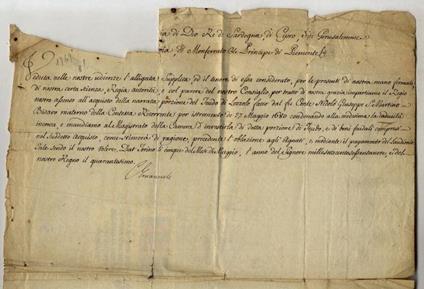 di Dio Re di Sardegna, di Cipro, e di Gerusalemme
di Monferrato &c. Principe di Piemonte &c.
Veduta nelle nostre udienze l'alligata Supplica, ed il tenore di essa considerato, per le presenti di nostra mano firmate
di nostra certa scienza, Regia autorità, e col parere del nostro Consiglio per tratto di nostra grazia impartiamo il Regio
nostro assenso all'acquisto della narrata porzione del Feudo di fatto dal fu Conte Nicolò Giuseppe S. Martino
materno della Contessa Ricorrente, per istromento di 27 Maggio 1680 condonando alla medesima la caducità
incorsa, e mandiamo al Magistrato della Camera d'investirla di detta porzione di Feudo, e de' beni feudali compresi
nel suddetto acquisto, come stimerà di ragione, precedente l'oblazione agli Agnati, e mediante il pagamento del Laudemio
tale sendo il nostro volere. Dat. Torino li cinque del Mese di Maggio, l'anno del Signore mille settecento e del
nostro Regno il quarantesimo.
Emanuele